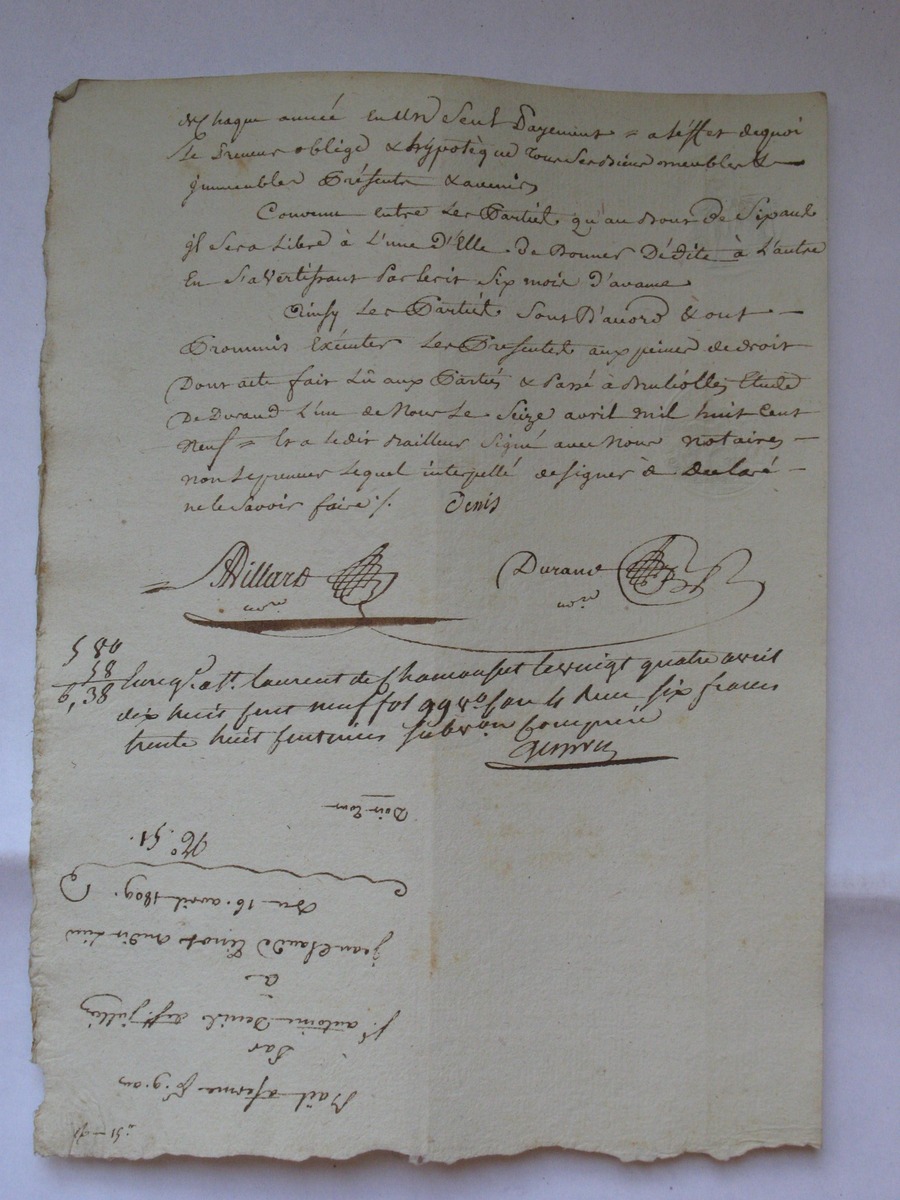 de Chaque année En un Seul Payement = a l'effet de quoi
Le Preneur oblige & hypotèque Tous Ses Biens meubles &
jmmeubles Présents & avenir
Convenu Entre Les Partiës qu'au Bout de Six ans
jl Sera Libre à L'une D'Elle De Donner Dédite à L'autre
En S'avertissant Par Ecrit Six mois D'avance
Ainsy Les Partiës Sont D'accord & ont
Prommis Exécuter Les Présentes aux peines de droit
Dont acte fait Lû aux Partiës & Passé à Brulliolles Etude
De Durand L'un de Nous Le Seize avril mil huit Cent
Neuf = Et a ledit Bailleur Signé avec Nous notaires
non Le preneur Lequel interpellé de signer à déclaré
ne le Savoir faire /. Denis
Villard
nore
Durand
nore
5 80
58
6, 38
Enregé. a St. laurent de Chamousset le vingt quatre avril
dix huit Cent neuf fol 99 Reçu six francs
trente huit Centimes subvon Comprise
No. 51.
Du 16. avril 1809.
jean Claude
a
Sr. antoine Denis de St. julien
Par
Bail a ferme